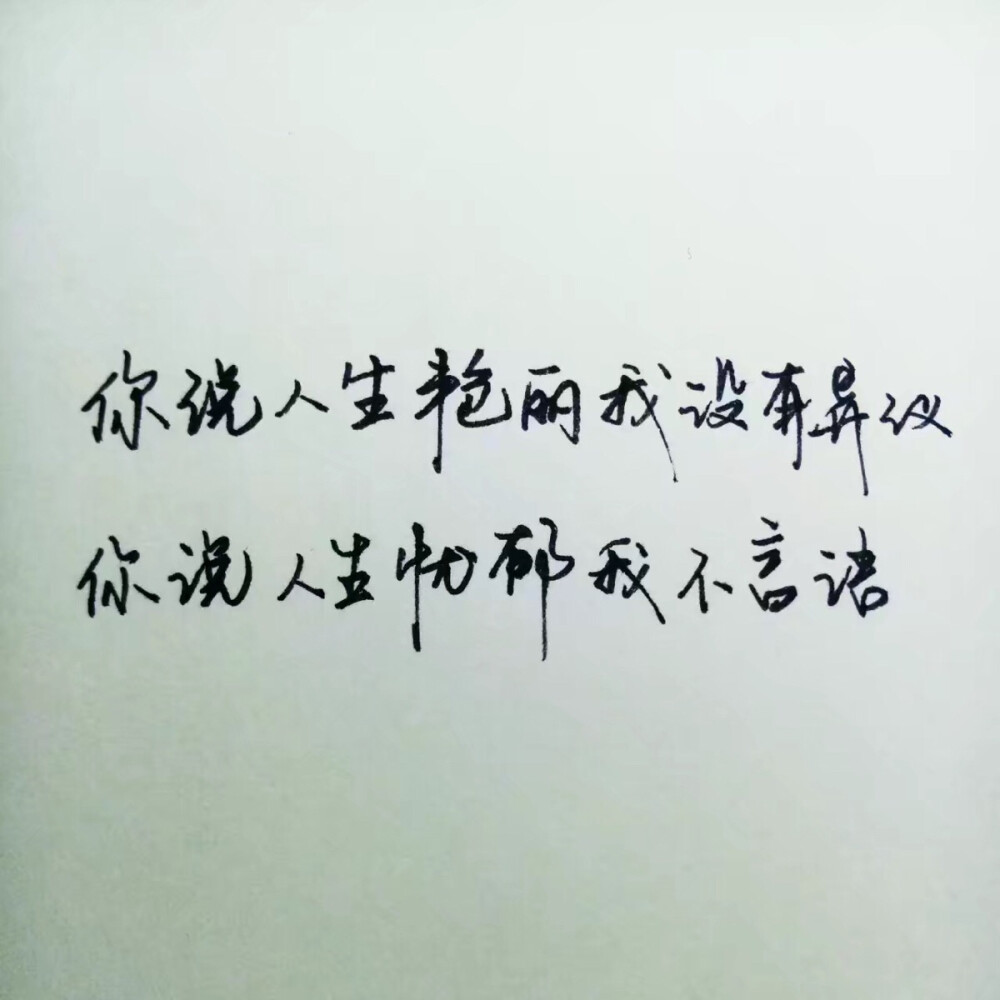 你说人生艳丽我没有异议
你说人生忧郁我不言语